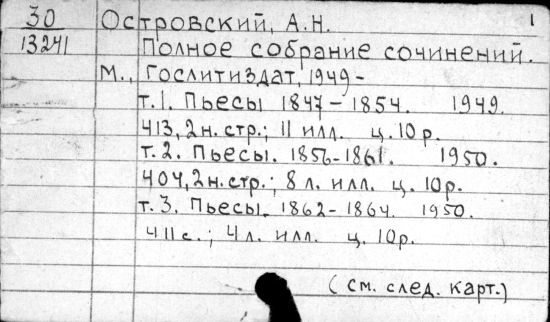 30
13241
Островский, А.Н. 1
Полное собрание сочинений.
М., Гослитиздат, 1949 –
т.1. Пьесы 1847 – 1854. 1949.
413, 2 н. стр.; 11 илл. ц. 10 р.
т.2. Пьесы. 1856-1861. 1950.
404, 2 н. стр.; 8 л. илл. ц. 10р.
т.3. Пьесы. 1862 – 1864. 1950.
411 с.; 4 л. илл. ц. 10р.
(см. след. карт.)